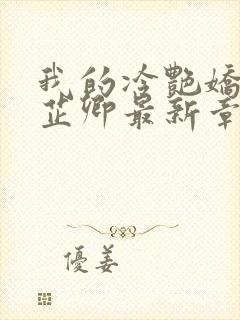 我的冷艷嬌
芷卿最新章
優姜